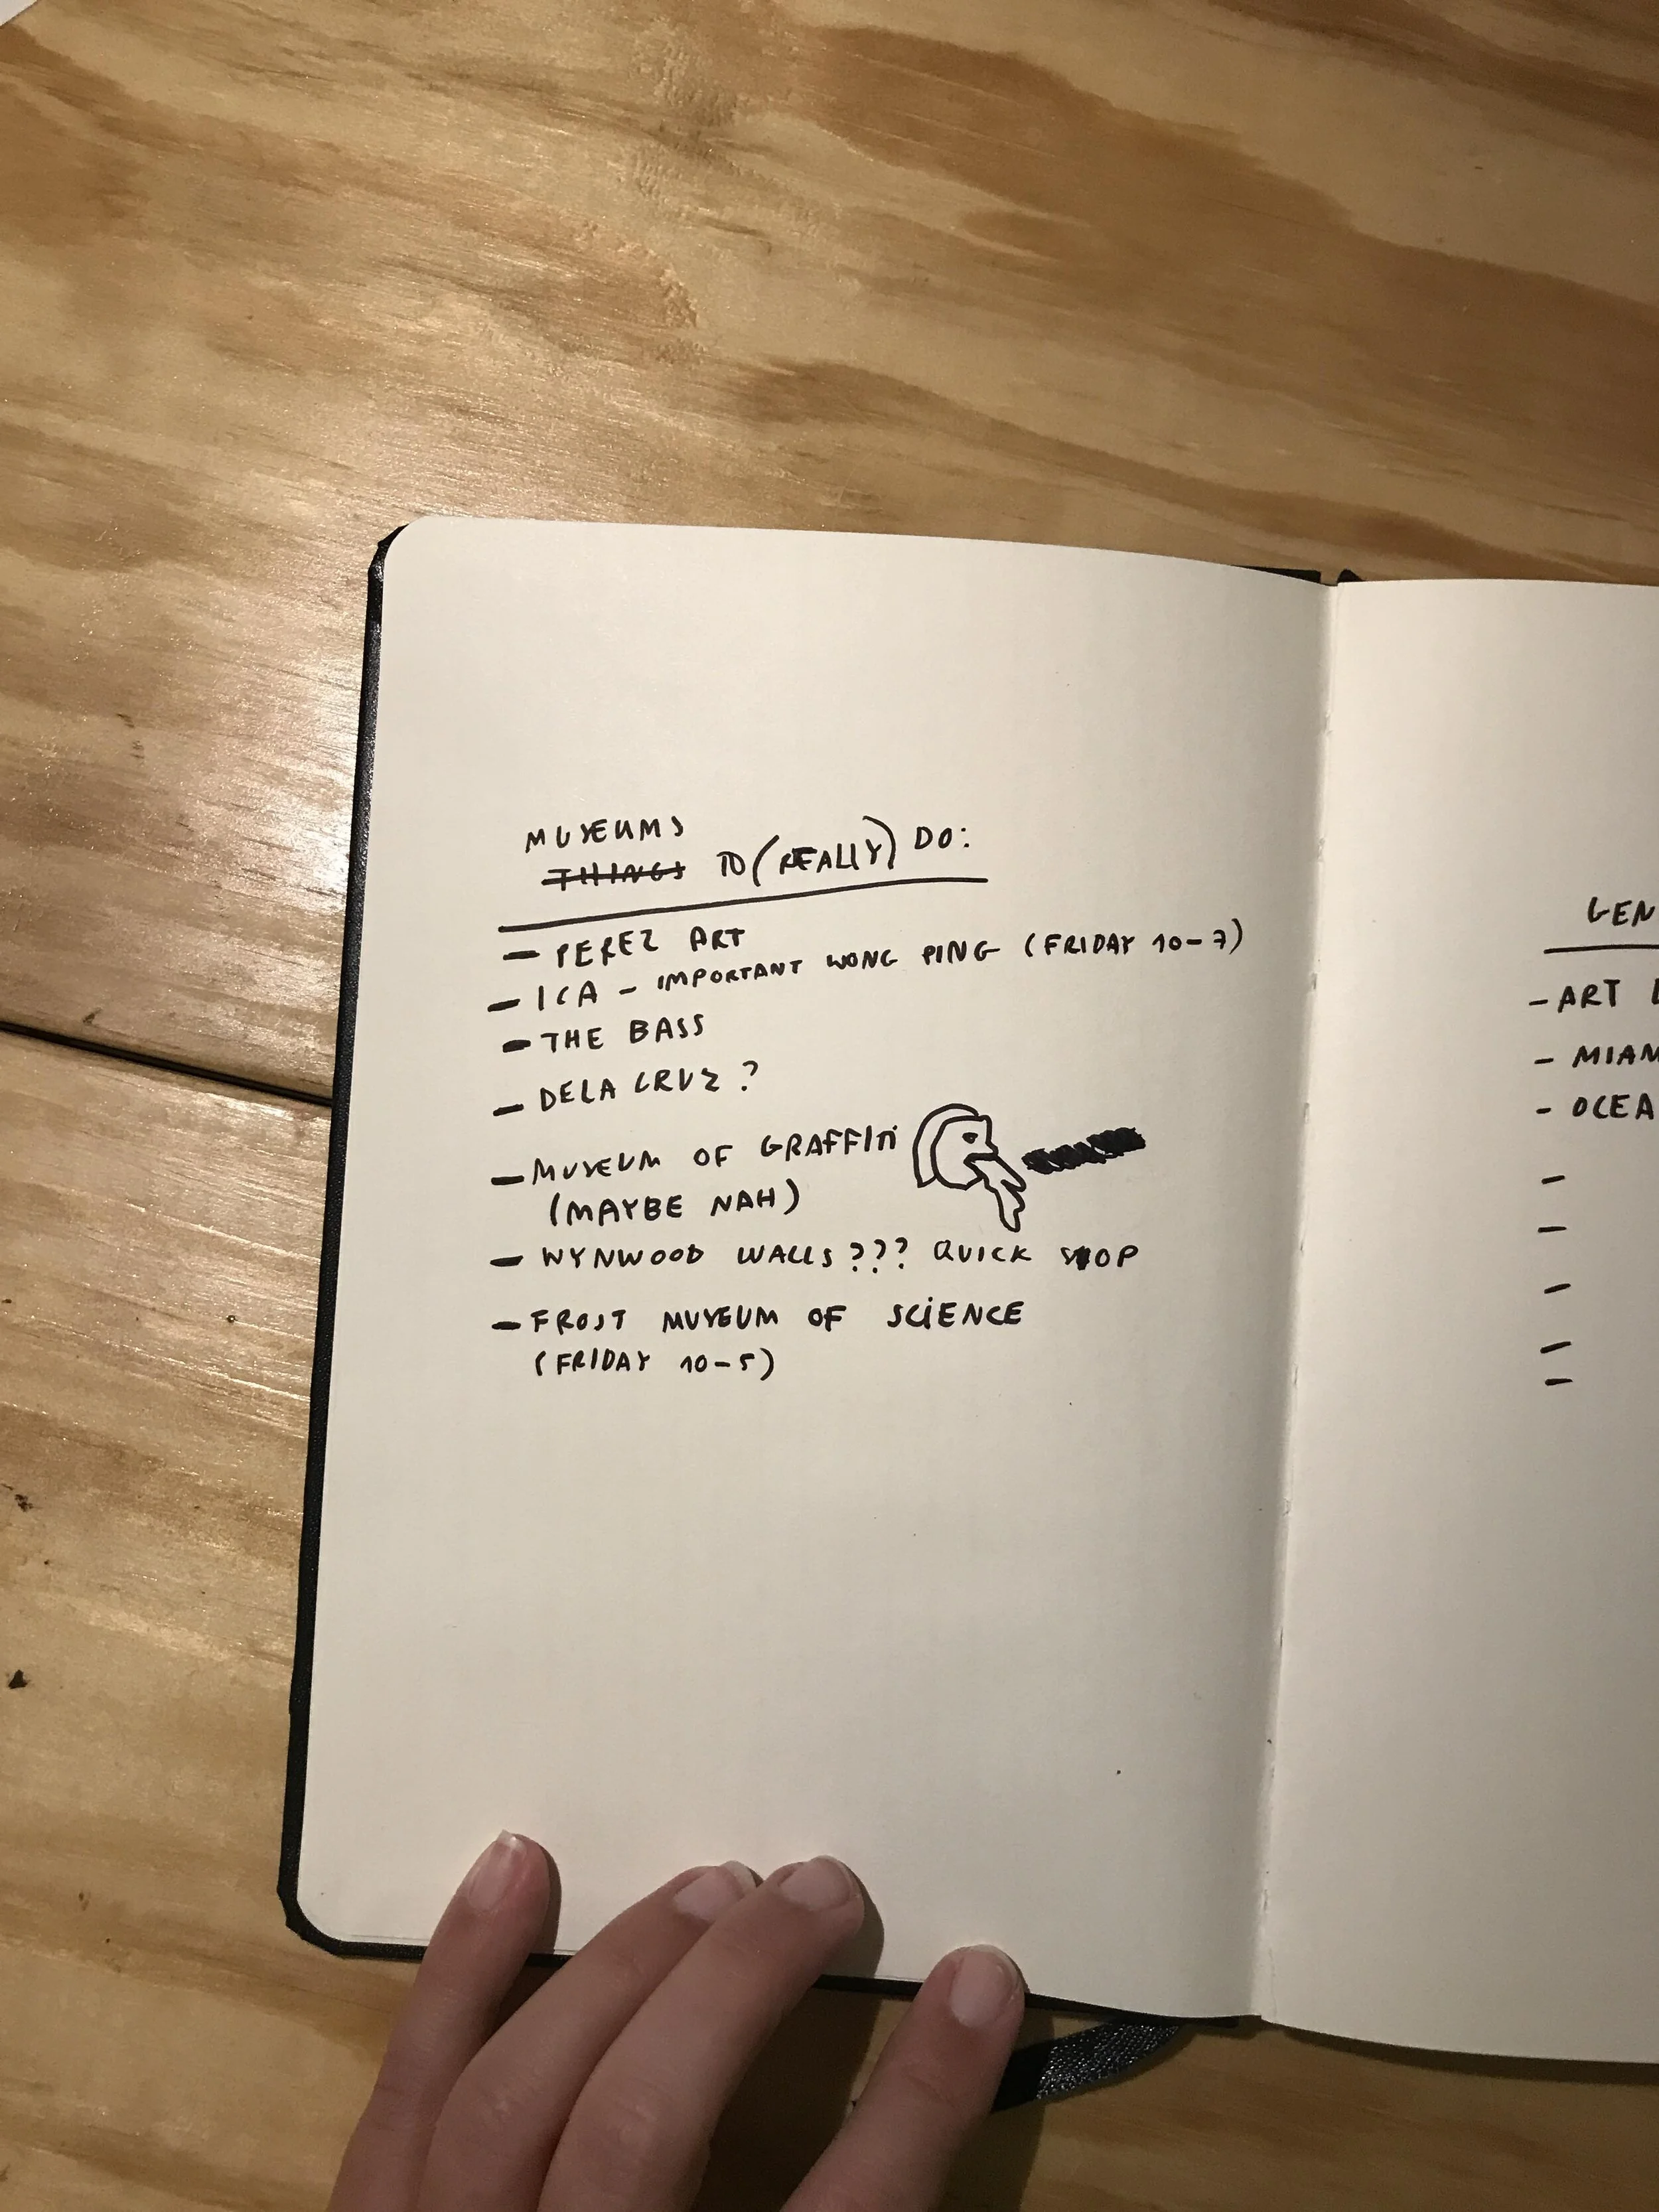 MUSEUMS
THINGS TO (REALLY) DO:
- PEREZ ART
- ICA - IMPORTANT WONG PING (FRIDAY 10-7)
- THE BASS
- DELA CRUZ ?
- MUSEUM OF GRAFFITI
(MAYBE NAH)
- WYNWOOD WALLS ??? QUICK STOP
- FROST MUSEUM OF SCIENCE
(FRIDAY 10-5)
GEN
- ART
- MIAM
- OCEA
-
-
-
-
-